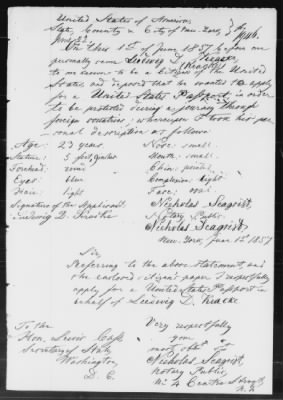 United States of America
State, County & City of New York,
On this 1st of June 1857 before me
personally came Ludwig D. Kracke
(Kracke)
to me known to be a Citizen of the United
States and deposed that he wanted to apply
for a United States Passport in order
to be protected during a journey through
foreign countries; whereupon I took her per-
sonal description as follows
Age: 23 years. Nose: small.
Stature: 5 feet, Mouth: small.
Forehead: Chin: pointed
Eyes: blue Complexion light
Hair: light Face: oval
Signature of the Applicant. Nicholas Seagrist,
Ludwig D. Kracke Notary Public.
Nicholas Seagrist
New York, June 1st 1857
Sir,
Referring to the above statement, and
the enclosed Citizen's paper I respectfully
apply for a United States Passport in
behalf of Ludwig D. Kracke
To the Very respectfully
Hon. Lewis Cass your
Secretary of State most obt. st
Washington Nicholas Seagrist,
D. C. Notary Public,
No 4 Centre Street,
N.Y.